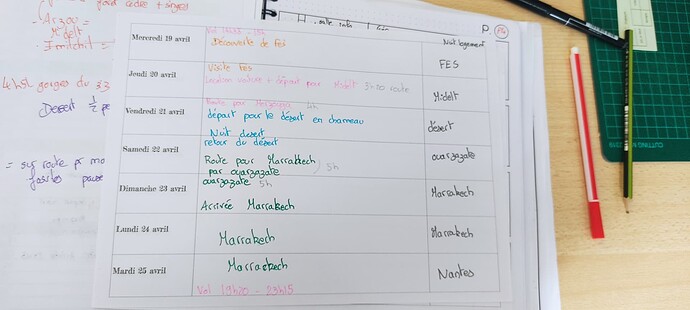 pour cèdre + singes
- Azrou =
Midelt
- Imilchil =
4h51 gorges du
Desert 1/2
= sur route pr
fossiles pause
P.
Nuit logement
Mercredi 19 avril
Vol
Découverte de Fès
FES
Jeudi 20 avril
Visite Fès
Location voiture + départ pour Midelt 3h00 route
Midelt
Vendredi 21 avril
Route pour Merzouga 4h
départ pour le désert en chameau
Nuit desert
désert
Samedi 22 avril
retour du désert
Route pour Marrakech
par ouarzazate
5h
ouarzazate
Dimanche 23 avril
ouarzazate 5h
Arrivée Marrakech
Marrakech
Lundi 24 avril
Marrakech
Marrakech
Mardi 25 avril
Marrakech
Vol 19h20 - 23h15
Nantes